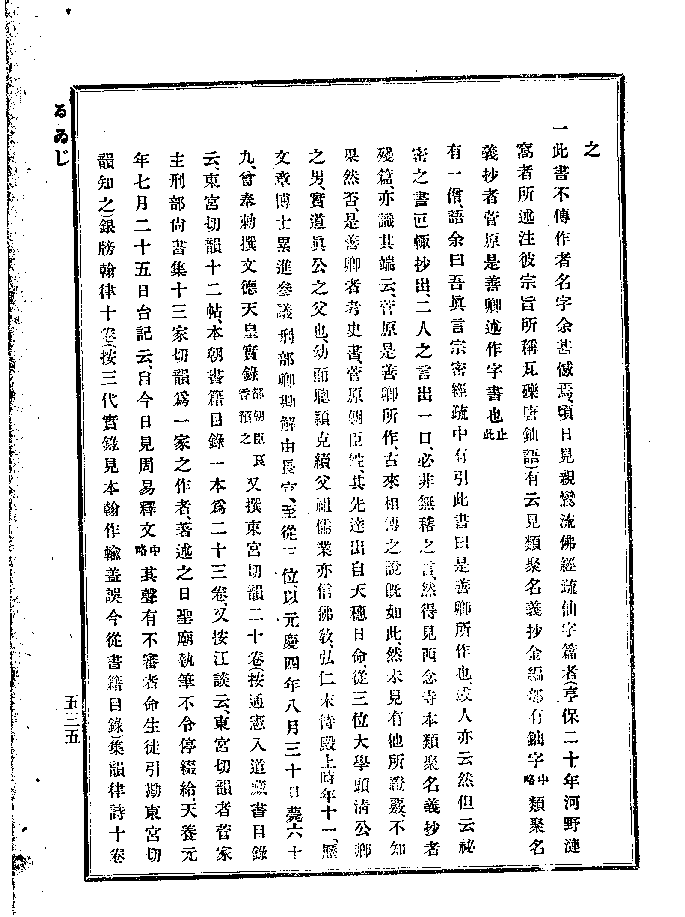 るゐじ
之
一此書不傳作者名字余甚憾焉、頃日見親鸞流佛經疏仙字篇者(享保二十年河野漣
窩者所述注彼宗旨所稱瓦礫唐鈾語)有云見類聚名義抄金編部有鈾字中略類聚名
義抄者菅原是善卿述作字書也止此
有一僧、語余曰吾眞言宗密經疏中有引此書曰是善卿所作也或人亦云然但云祕
密之書叵輙抄出、二人之言出一口、必非無稽之言、然得見西念寺本類聚名義抄者
殘篇、亦識其端云、菅原是善卿所作、古來相傳之說旣如此、然未見有他所證覈、不知
果然否、是善卿者考史書、菅原朝臣姓、其先達出自天穗日命、從三位大學頭淸公卿
之男、實道眞公之父也、幼而聰穎克續父祖儒業亦信佛敎、弘仁末侍殿上時年十一、歷
文章博士累進參議刑部卿勘解由長官、至從三位、以元慶四年八月三十日薨六十
九、曾奉勅撰文德天皇實錄都朝臣良香預之又撰東宮切韻二十卷(按通憲入道藏書目錄
云、東宮切韻十二帖、本朝書籍目錄一本爲二十三卷、又按江談云、東宮切韻者菅家
主刑部尙書集十三家切韻爲一家之作者著述之日聖廟執筆不令停綴給天養元
年七月二十五日台記云、自今日見周易釋文中略其聲有不審者命生徒引勘東宮切
韻知之銀牓翰律十卷(按三代實錄見本翰作輸蓋誤今從書籍目錄)集韻律詩十卷
五三五